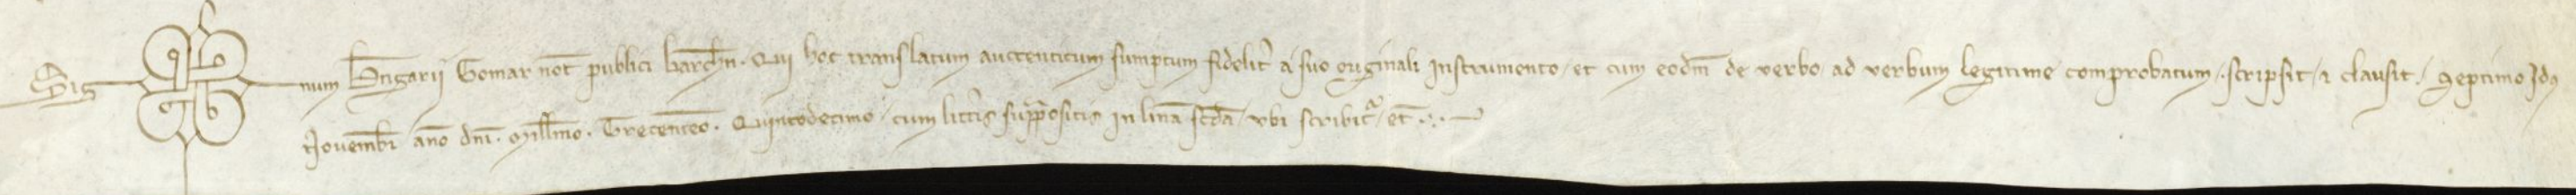 Sig num Bn̄garii Gomar not̄ publici barch̄n. Qui hoc translatum auctenticum sumptum fidelit̉ a suo originali Instrumento / et cum eodm̄ de verbo ad verbum legitime comprobatum / scripsit / ⁊ clausit / Septimo Idꝰ
Novembr̄ / anō dn̄i. Mill̄mo. Trecenteō. Quintodecimo / cum litt̉is supp̄ositis in lin̄a sc̄da / ubi scribit̉ / et̄ ⁘